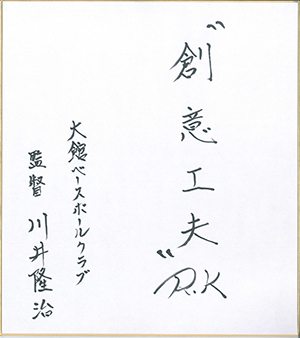 "創意工夫" R.K
大館ベースボールクラブ
監督 川井隆治